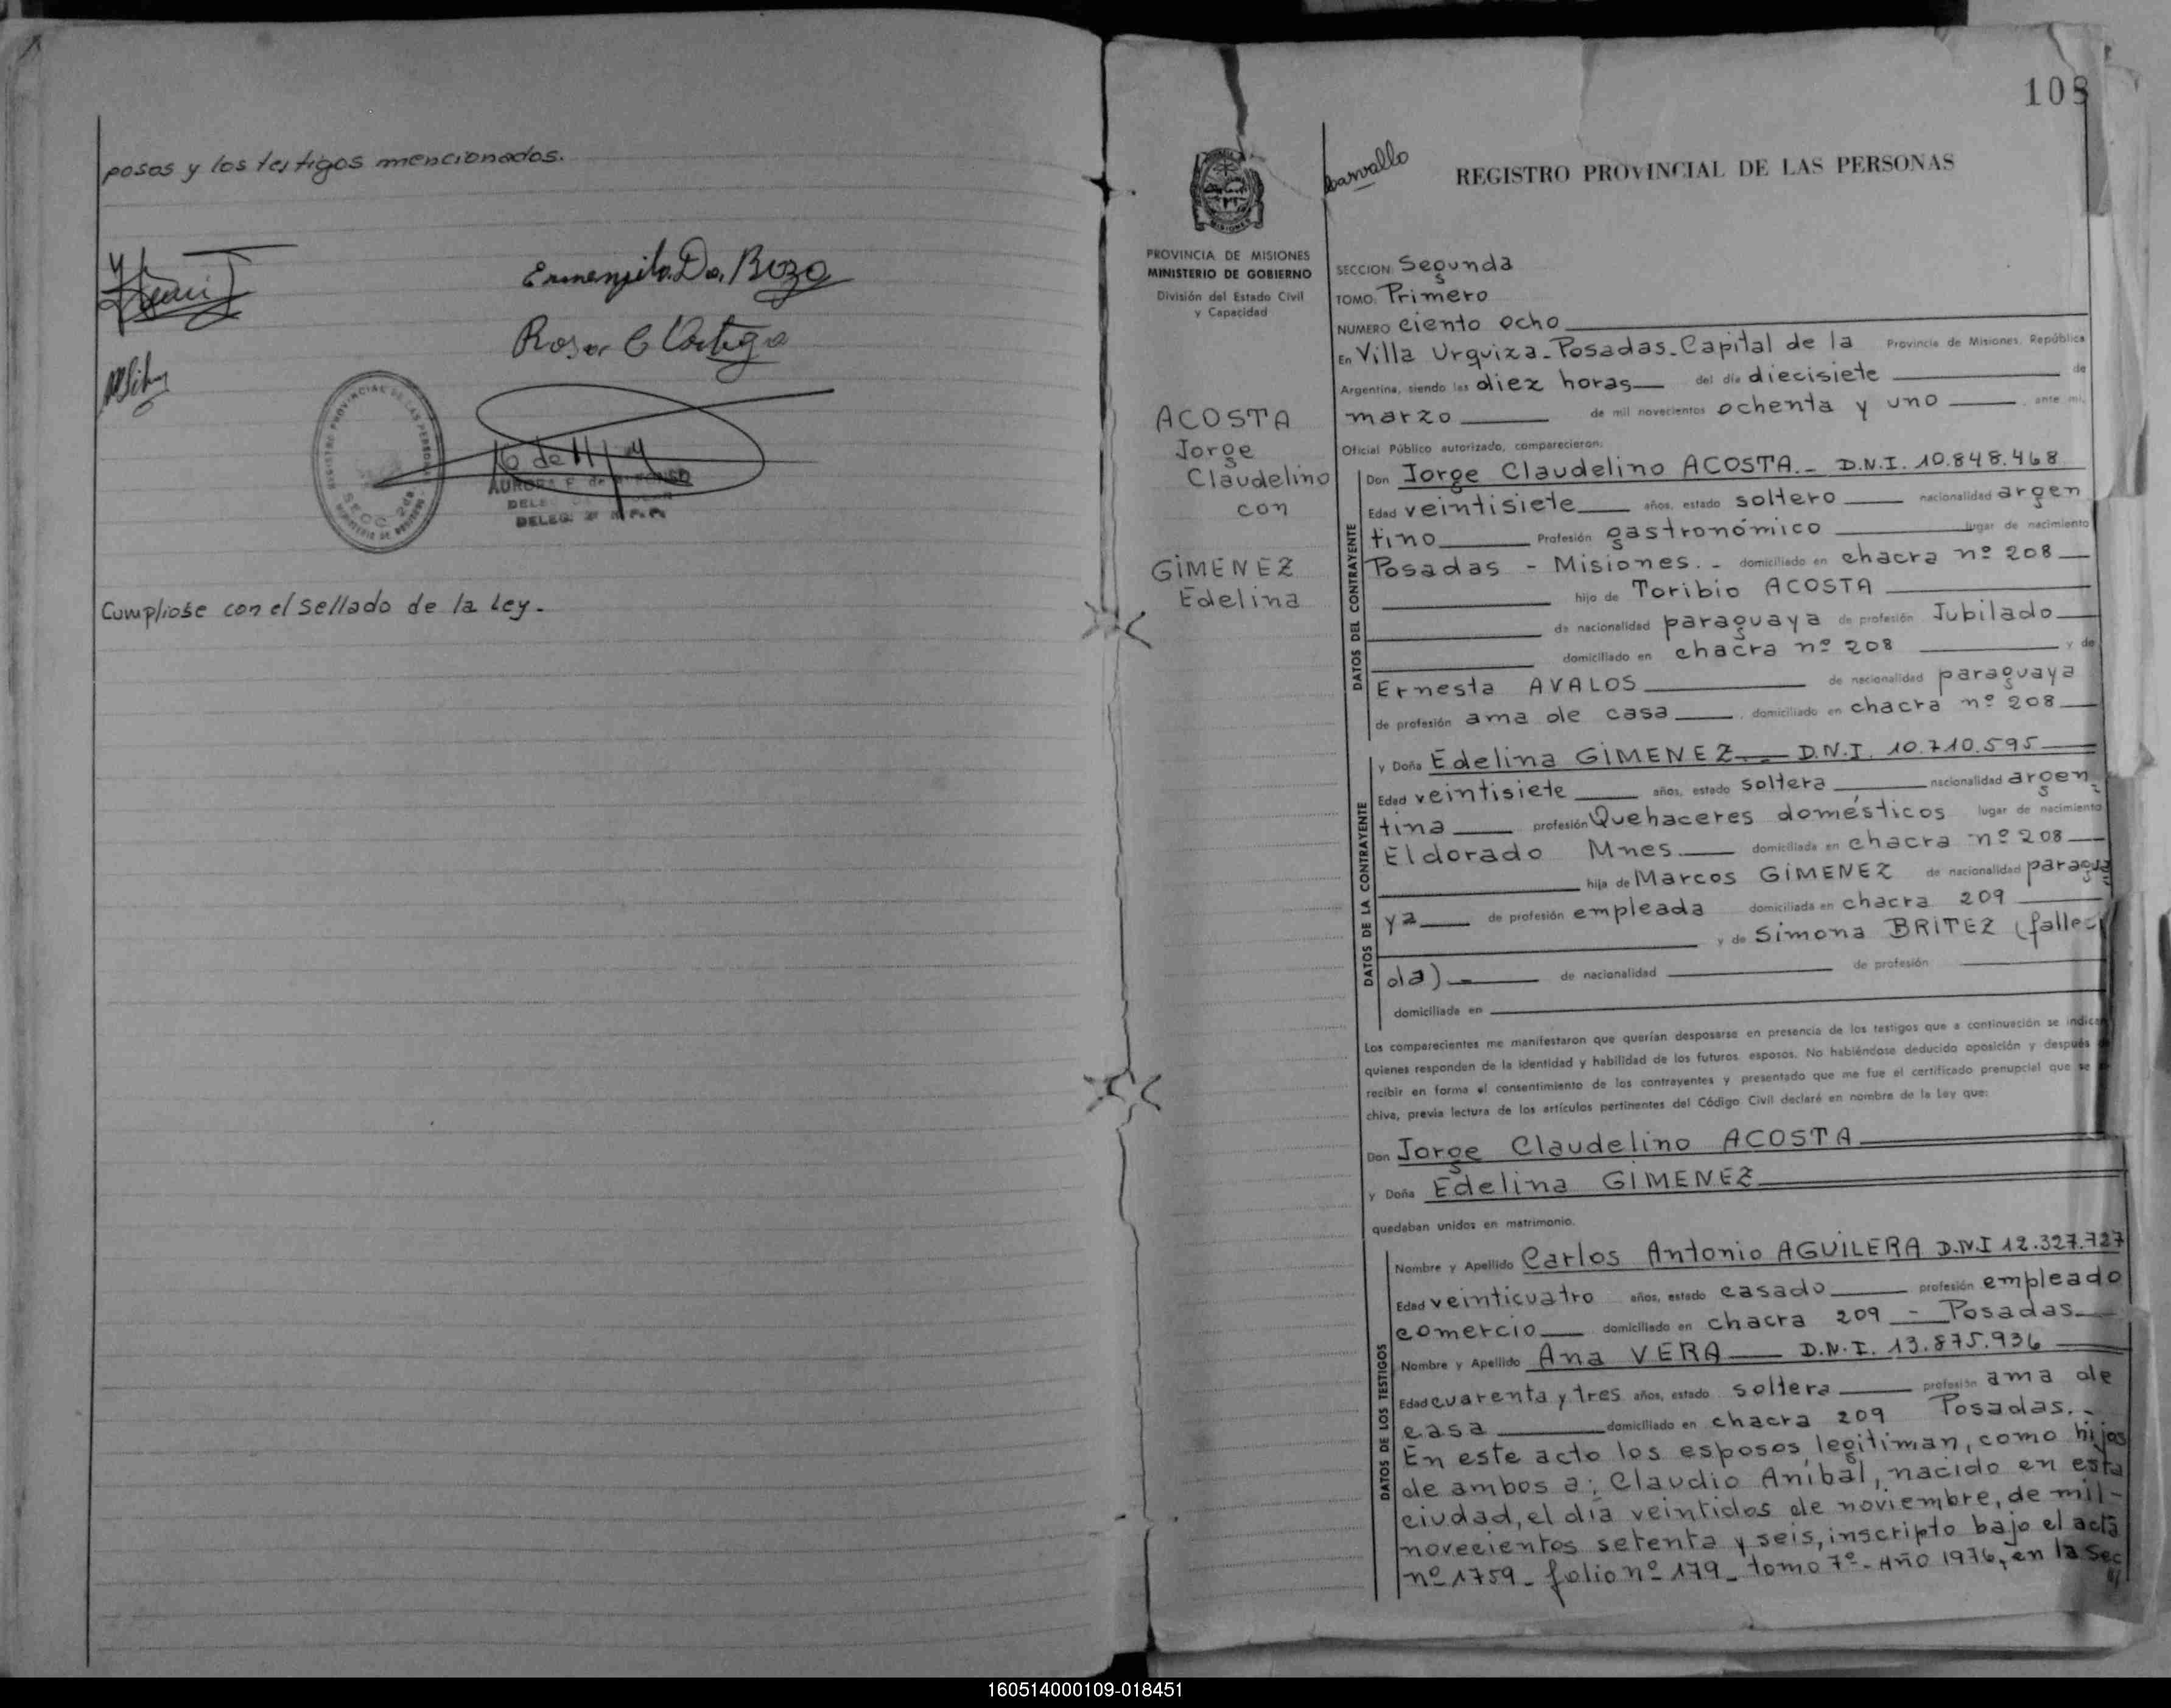 posos y los testigos mencionados.
Ermenegilo Da, Bozo
Rosa C Ortega
REGISTRO PROVINCIAL DE LAS PERSONAS
SECC. 2da.
AURORA F. de
DELEG.
Cumpliose con el sellado de la Ley.-
108
Carvallo
REGISTRO PROVINCIAL DE LAS PERSONAS
MISIONES
PROVINCIA DE MISIONES
MINISTERIO DE GOBIERNO
División del Estado Civil
y Capacidad
ACOSTA
Jorge
Claudelino
con
GIMENEZ
Edelina
SECCION: Segunda
TOMO: Primero
NUMERO ciento ocho
En Villa Urquiza-Posadas-Capital de la Provincia de Misiones, República
Argentina, siendo las diez horas del día diecisiete de
marzo de mil novecientos ochenta y uno, ante mi,
Oficial Público autorizado, comparecieron:
DATOS DEL CONTRAYENTE
Don Jorge Claudelino ACOSTA.- D.N.I. 10.848.468
Edad veintisiete años, estado soltero nacionalidad argen
tino Profesión gastronómico lugar de nacimiento
Posadas - Misiones.- domiciliado en chacra nº 208
hijo de Toribio ACOSTA
de nacionalidad paraguaya de profesión Jubilado
domiciliado en chacra nº 208 y de
Ernesta AVALOS de nacionalidad paraguaya
de profesión ama de casa, domiciliado en chacra nº 208
DATOS DE LA CONTRAYENTE
y Doña Edelina GIMENEZ.- D.N.I. 10.710.595
Edad veintisiete años, estado soltera nacionalidad argen
tina profesión Quehaceres domésticos lugar de nacimiento
Eldorado Mnes. domiciliada en chacra nº 208
hija de Marcos GIMENEZ de nacionalidad paragua
ya de profesión empleada domiciliada en chacra 209
y de Simona BRITEZ (falleci
da).- de nacionalidad de profesión
domiciliada en
Los comparecientes me manifestaron que querían desposarse en presencia de los testigos que a continuación se indican
quienes responden de la identidad y habilidad de los futuros esposos. No habiéndose deducido oposición y después
recibir en forma el consentimiento de los contrayentes y presentado que me fue el certificado prenupcial que se
chiva, previa lectura de los artículos pertinentes del Código Civil declaré en nombre de la Ley que:
Don Jorge Claudelino ACOSTA
y Doña Edelina GIMENEZ
quedaban unidos en matrimonio.
DATOS DE LOS TESTIGOS
Nombre y Apellido Carlos Antonio AGUILERA D.N.I 12.327.727
Edad veinticuatro años, estado casado profesión empleado
comercio domiciliado en chacra 209 - Posadas
Nombre y Apellido Ana VERA D.N.I. 13.875.936
Edad cuarenta y tres años, estado soltera profesión ama de
casa domiciliado en chacra 209 Posadas.-
En este acto los esposos legitiman, como hijos
de ambos a; Claudio Aníbal, nacido en esta
ciudad, el día veintidos de noviembre, de mil-
novecientos setenta y seis, inscripto bajo el acta
nº 1759- folio nº 179- tomo 7º- Año 1976, en la Sec
160514000109-018451